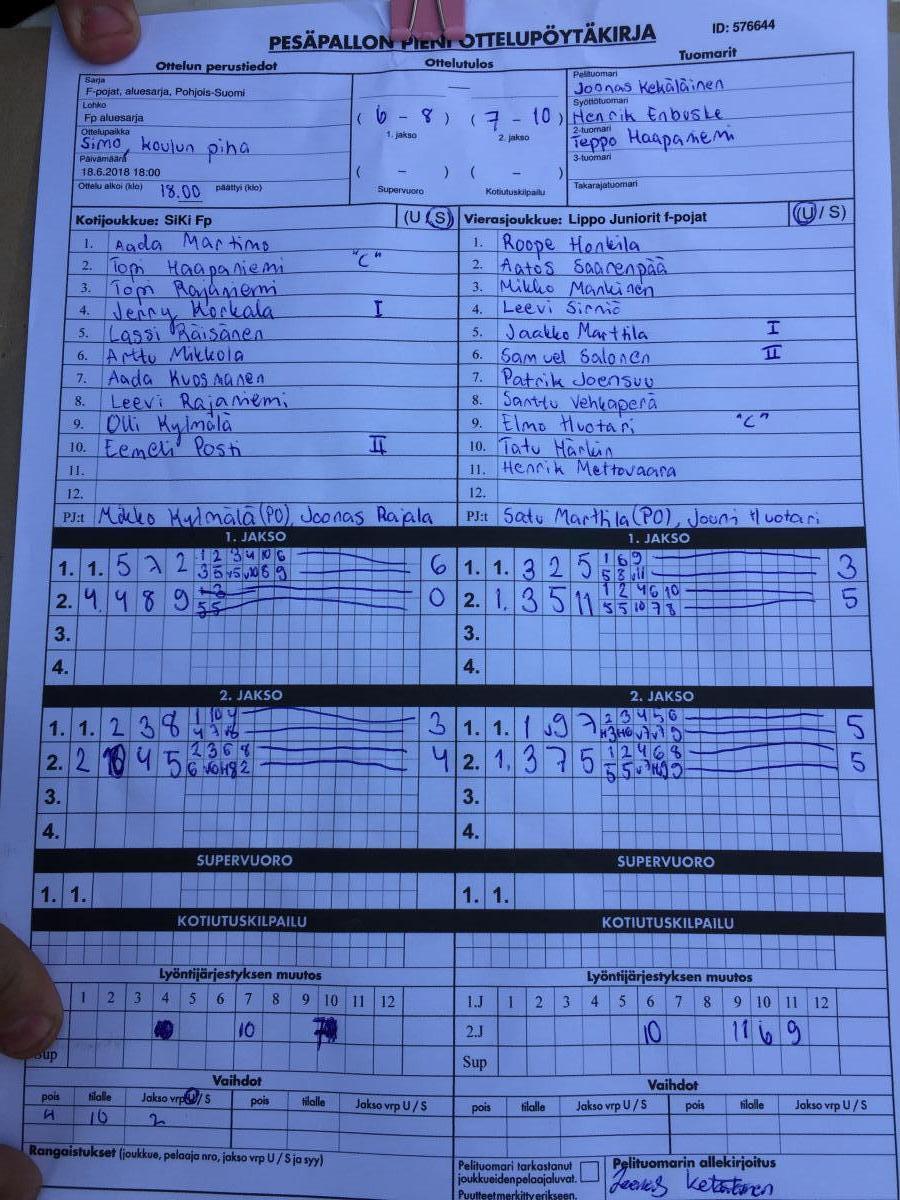 PESÄPALLON PIENI OTTELUPÖYTÄKIRJA
ID: 576644
Ottelun perustiedot
Sarja
F-pojat, aluesarja, Pohjois-Suomi
Lohko
Fp aluesarja
Ottelupaikka
Simo, koulun piha
Päivämäärä
18.6.2018 18:00
Ottelu alkoi (klo) 18.00 päättyi (klo)
Ottelutulos
( 6 - 8 ) ( 7 - 10 )
1. jakso 2. jakso
( - ) ( - )
Supervuoro Kotiutuskilpailu
Tuomarit
Pelituomari
Joonas Kekäläinen
Syöttötuomari
Henrik Enbuske
2-tuomari
Teppo Haapaniemi
3-tuomari
Takarajatuomari
Kotijoukkue: SiKi Fp (U / S)
1. Aada Martimo
2. Topi Haapaniemi "C"
3. Topi Rajaniemi
4. Jenny Korkala I
5. Lassi Räisänen
6. Arttu Mikkola
7. Aada Kuosmanen
8. Leevi Rajaniemi
9. Olli Kylmälä
10. Eemeli Posti II
11.
12.
PJ:t Mikko Kylmälä (PO), Joonas Rajala
Vierasjoukkue: Lippo Juniorit f-pojat (U / S)
1. Roope Honkila
2. Aatos Saarenpää
3. Mikko Mankinen
4. Leevi Sirniö
5. Jaakko Marttila I
6. Samuel Salonen II
7. Patrik Joensuu
8. Santtu Vehkaperä
9. Elmo Huotari "C"
10. Tatu Härkin
11. Henrik Mettovaara
12.
PJ:t Satu Marttila (PO), Jouni Huotari
1. JAKSO
1. 1. 5 7 2 1 2 3 4 10 6 6
3 5 v5 v10 8 9
2. 4 4 8 9 0
5 5
3.
4.
1. JAKSO
1. 1. 3 2 5 1 6 9 3
5 8 v11
2. 1. 3 5 11 1 2 4 6 10 5
5 5 10 7 8
3.
4.
2. JAKSO
1. 1. 2 3 8 1 10 4 3
4 7 v6
2. 2 10 4 5 2 3 6 8 4
3.
4.
2. JAKSO
1. 1. 1 9 7 2 3 4 5 6 5
2. 1. 3 7 5 1 2 4 6 8 5
3.
4.
SUPERVUORO
1. 1.
SUPERVUORO
1. 1.
KOTIUTUSKILPAILU
KOTIUTUSKILPAILU
Lyöntijärjestyksen muutos
1 2 3 4 5 6 7 8 9 10 11 12
10
Sup
Lyöntijärjestyksen muutos
1.J 1 2 3 4 5 6 7 8 9 10 11 12
2.J 10 11 6 9
Sup
Vaihdot
pois tilalle Jakso vrp U / S pois tilalle Jakso vrp U / S
4 10 2
Vaihdot
pois tilalle Jakso vrp U / S pois tilalle Jakso vrp U / S
Rangaistukset (joukkue, pelaaja nro, jakso vrp U / S ja syy)
Pelituomari tarkastanut
joukkueiden pelaajaluvat.
Puutteet merkitty erikseen.
Pelituomarin allekirjoitus
Joonas Kekäläinen